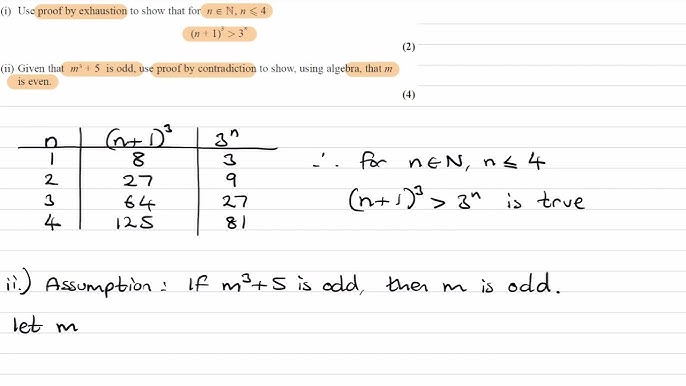 (i) Use proof by exhaustion to show that for n ∈ ℕ, n ⩽ 4
(n + 1)³ > 3ⁿ
(2)
(ii) Given that m³ + 5 is odd, use proof by contradiction to show, using algebra, that m
is even.
(4)
n (n+1)³ 3ⁿ
1 8 3
2 27 9
3 64 27
4 125 81
∴ for n∈N, n ⩽ 4
(n+1)³ > 3ⁿ is true
ii.) Assumption: If m³+5 is odd, then m is odd.
let m